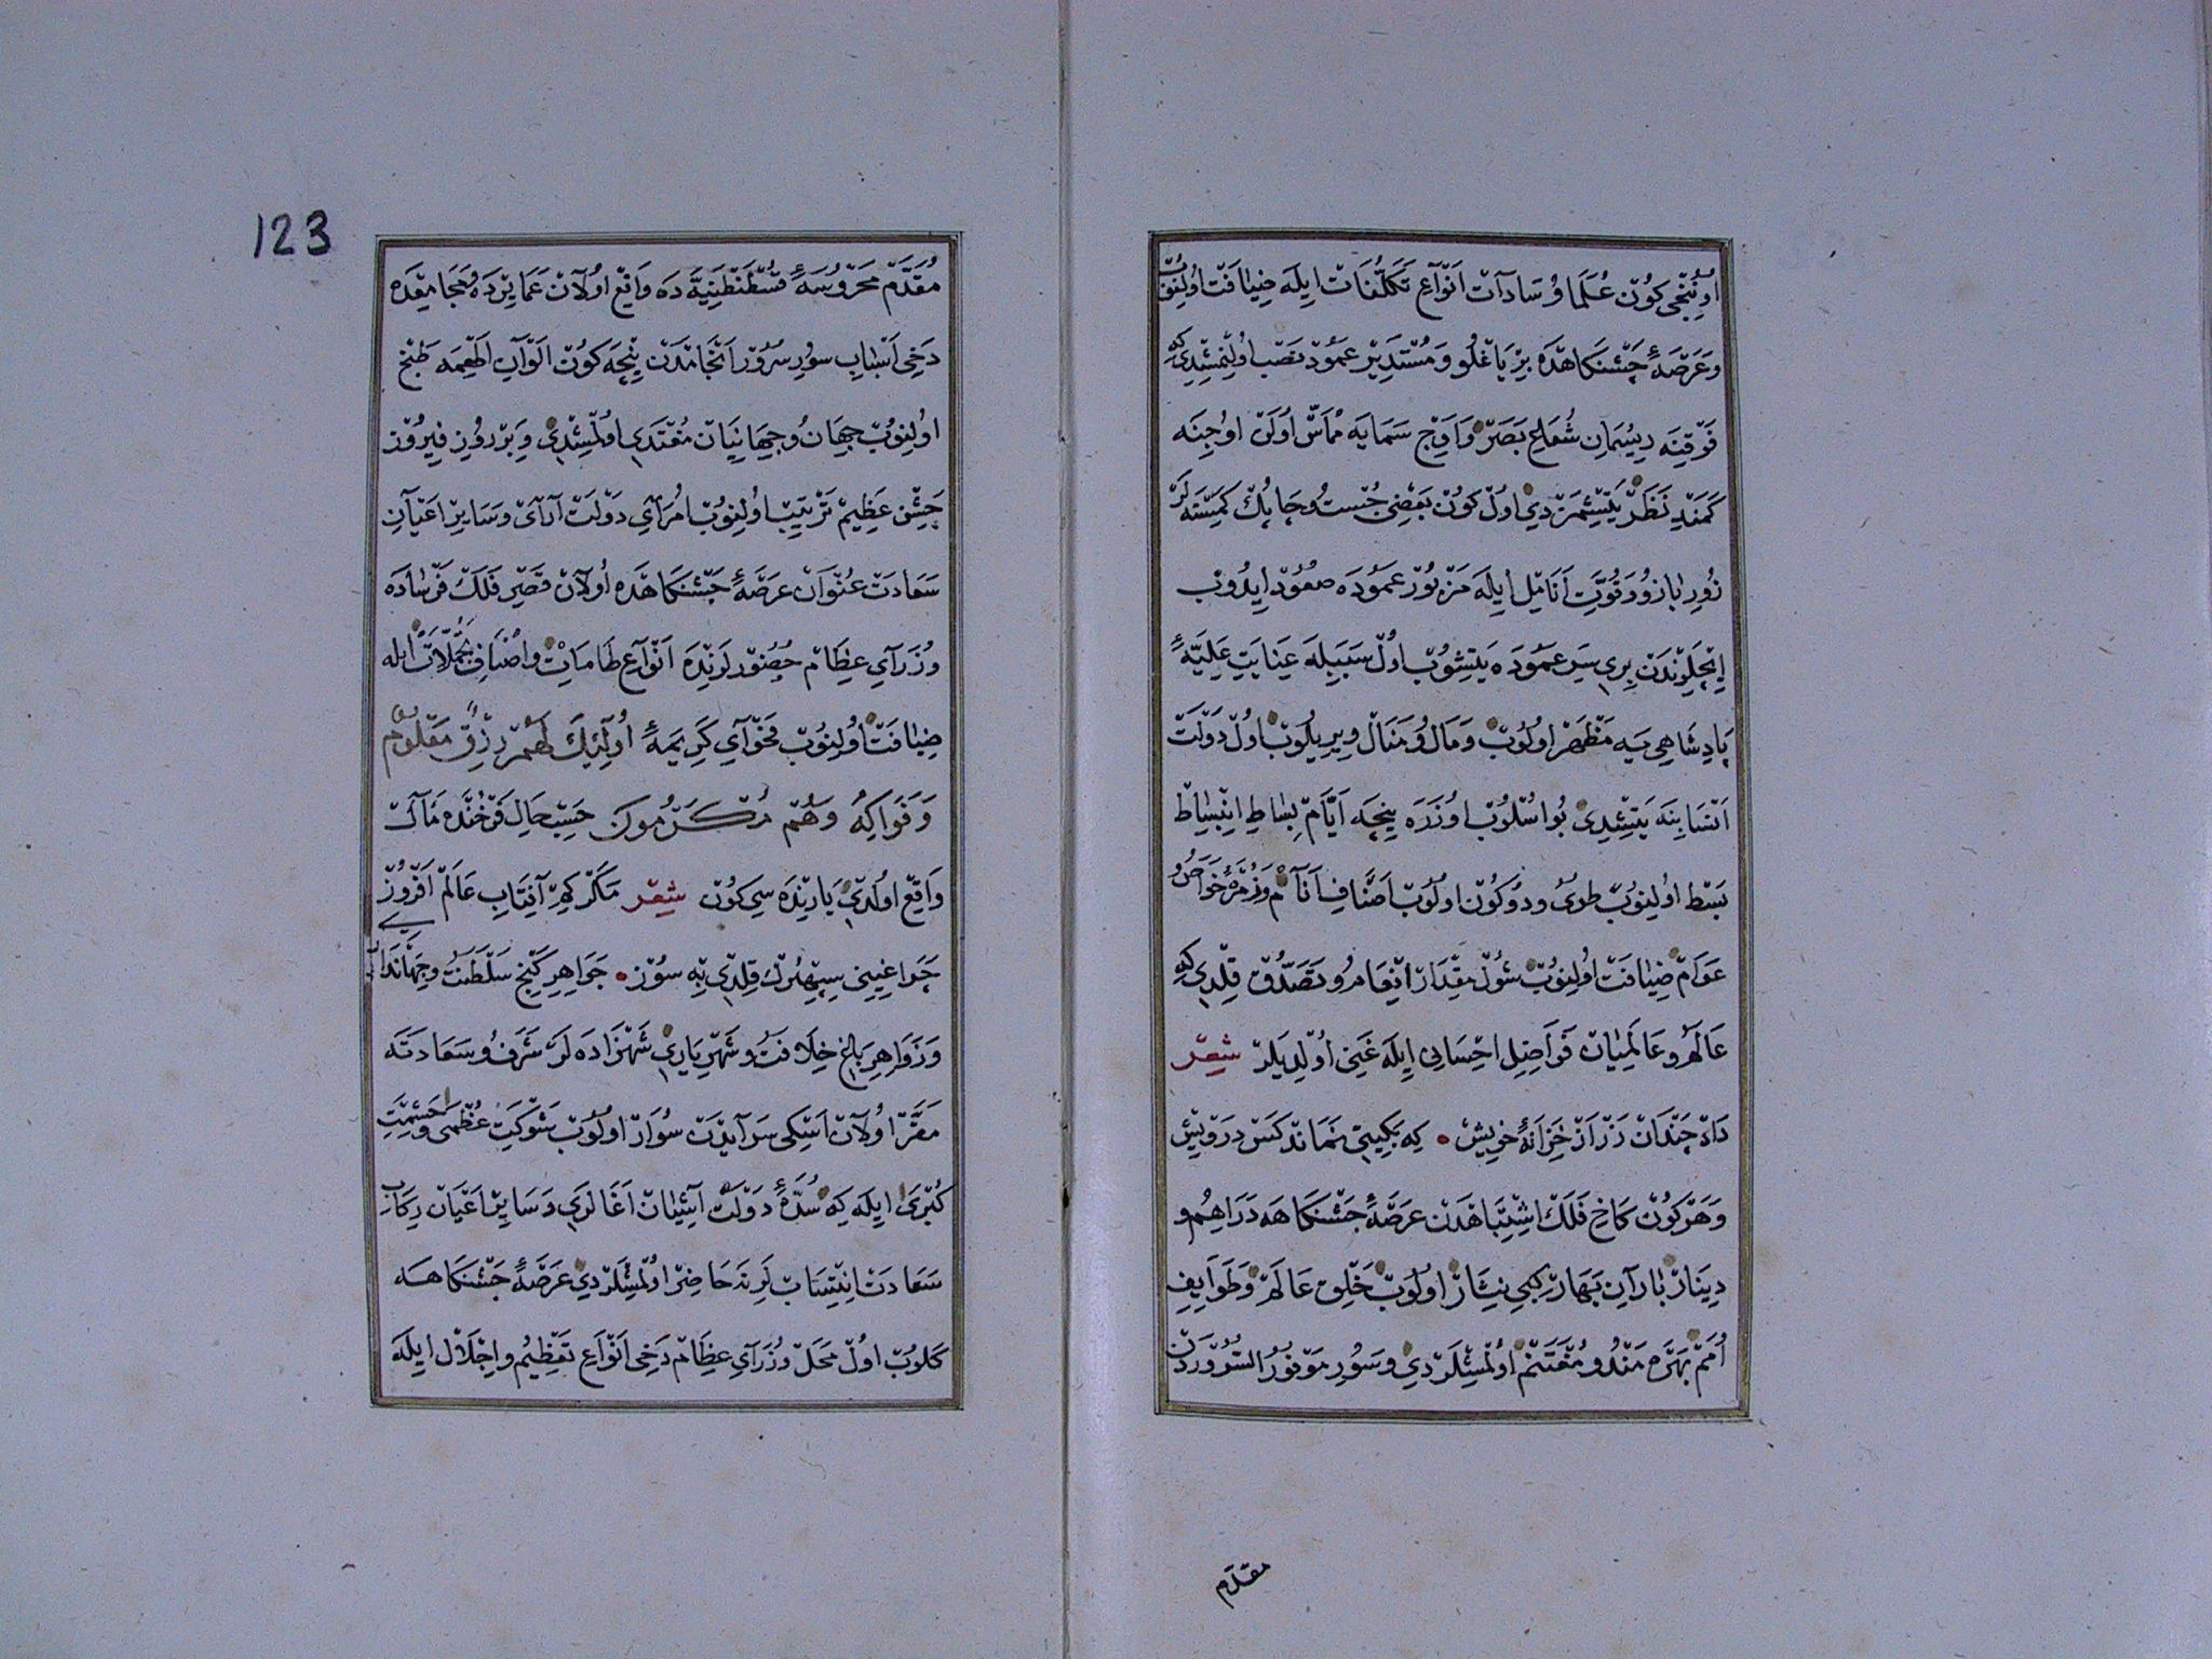 اوُننجى كون عُلَمَا وُ سَادَات اَنْوَاعِ تَكَلُّفَات ايله ضيافت اولنوب
و عَرْصَهٔ جشنكاهده بر ياغلو و مُسْتَدِير عمود نصب اولنمشدى كه
فَوْقِنه ريسمانِ شُعَاعِ بَصَر و اَوْجِ سَمَايه مُمَاسّ اولن اوجنه
كمندِ نَظَر يتشمزدى اول كون بعضى جُست و چابك كمسنه لر
زورِ بازو و قُوَّتِ اَنَامِل ايله مزبور عموده صعود ايدوب
ايچلرندن برى سرِ عموده يتشوب اول سببيله عنايتِ عليّهٔ
پادشاهى يه مظهر اولوب و مال و منال ويريلوب اول دولت
اَنسابنه يتشدى بو اسلوب اوزره نيچه ايّام بساطِ انبساط
بسط اولنوب طوى و دوكون اولوب اصنافِ اَنام و زمرهٔ خواصّ و
عوام ضيافت اولنوب شول مقدار انعام و تصدّق قلدى كه
عالم و عالميان فواضلِ احسانى ايله غنى اولديلر شعر
داد چندان زر از خزانهٔ خويش ۰ كه بكيتى نماند كس درويش
و هر كون كاخِ فلك اشتباهدن عرصهٔ جشنكاهه دراهم و
دينار بارانِ بهار كبى نثار اولوب خلقِ عالم و طوايفِ
اُمم بهره مند و مغتنم اولمشلردى و سورِ موفور السّروردن
مقدّم
123
مقدّم محروسهٔ قسطنطنيّه ده واقع اولان عمايرده و مجامعده
دخى اسبابِ سورِ سرور انجامدن نيچه كون الوانِ اطعمه طبخ
اولنوب جهان و جهانيان مغتدى اولمشدى و بر روزِ فيروز
جشنِ عظيم ترتيب اولنوب امراىِ دولت آراى و سايرِ اعيانِ
سعادت عنوان عرصهٔ جشنكاهده اولان قصرِ فلك فرساده
وزراىِ عظام حضورلرنده انواعِ طعامات و اصنافِ تجمّلات ايله
ضيافت اولنوب فحواىِ كريمهٔ اُولٓئِكَ لَهُمْ رِزْقٌ مَعْلُومٌ
وَ فَوَاكِهُ وَهُمْ مُكْرَمُونَ حسبِ حالِ فرخنده مآلت
واقع اولدى يارنده سى كون شعر مكر كم آفتابِ عالم افروز
چراغينى سپهرك قلدى پُر سوز ۰ جواهرِ كنجِ سلطنت و جهاندارى
و زواهرِ باغِ خلافت و شهريارى شهزاده لر شرف و سعادتَه
مقرّ اولان اسكى سرايدن سوار اولوب شوكتِ عظمى و حشمتِ
كبرى ايله كه سدّهٔ دولت آشيان اغالرى و سايرِ اعيان ركابِ
سعادت انتساب لرنه حاضر اولمشلردى عرصهٔ جشنكاهه
كلوب اول محل وزراىِ عظام دخى انواعِ تعظيم و اجلال ايله